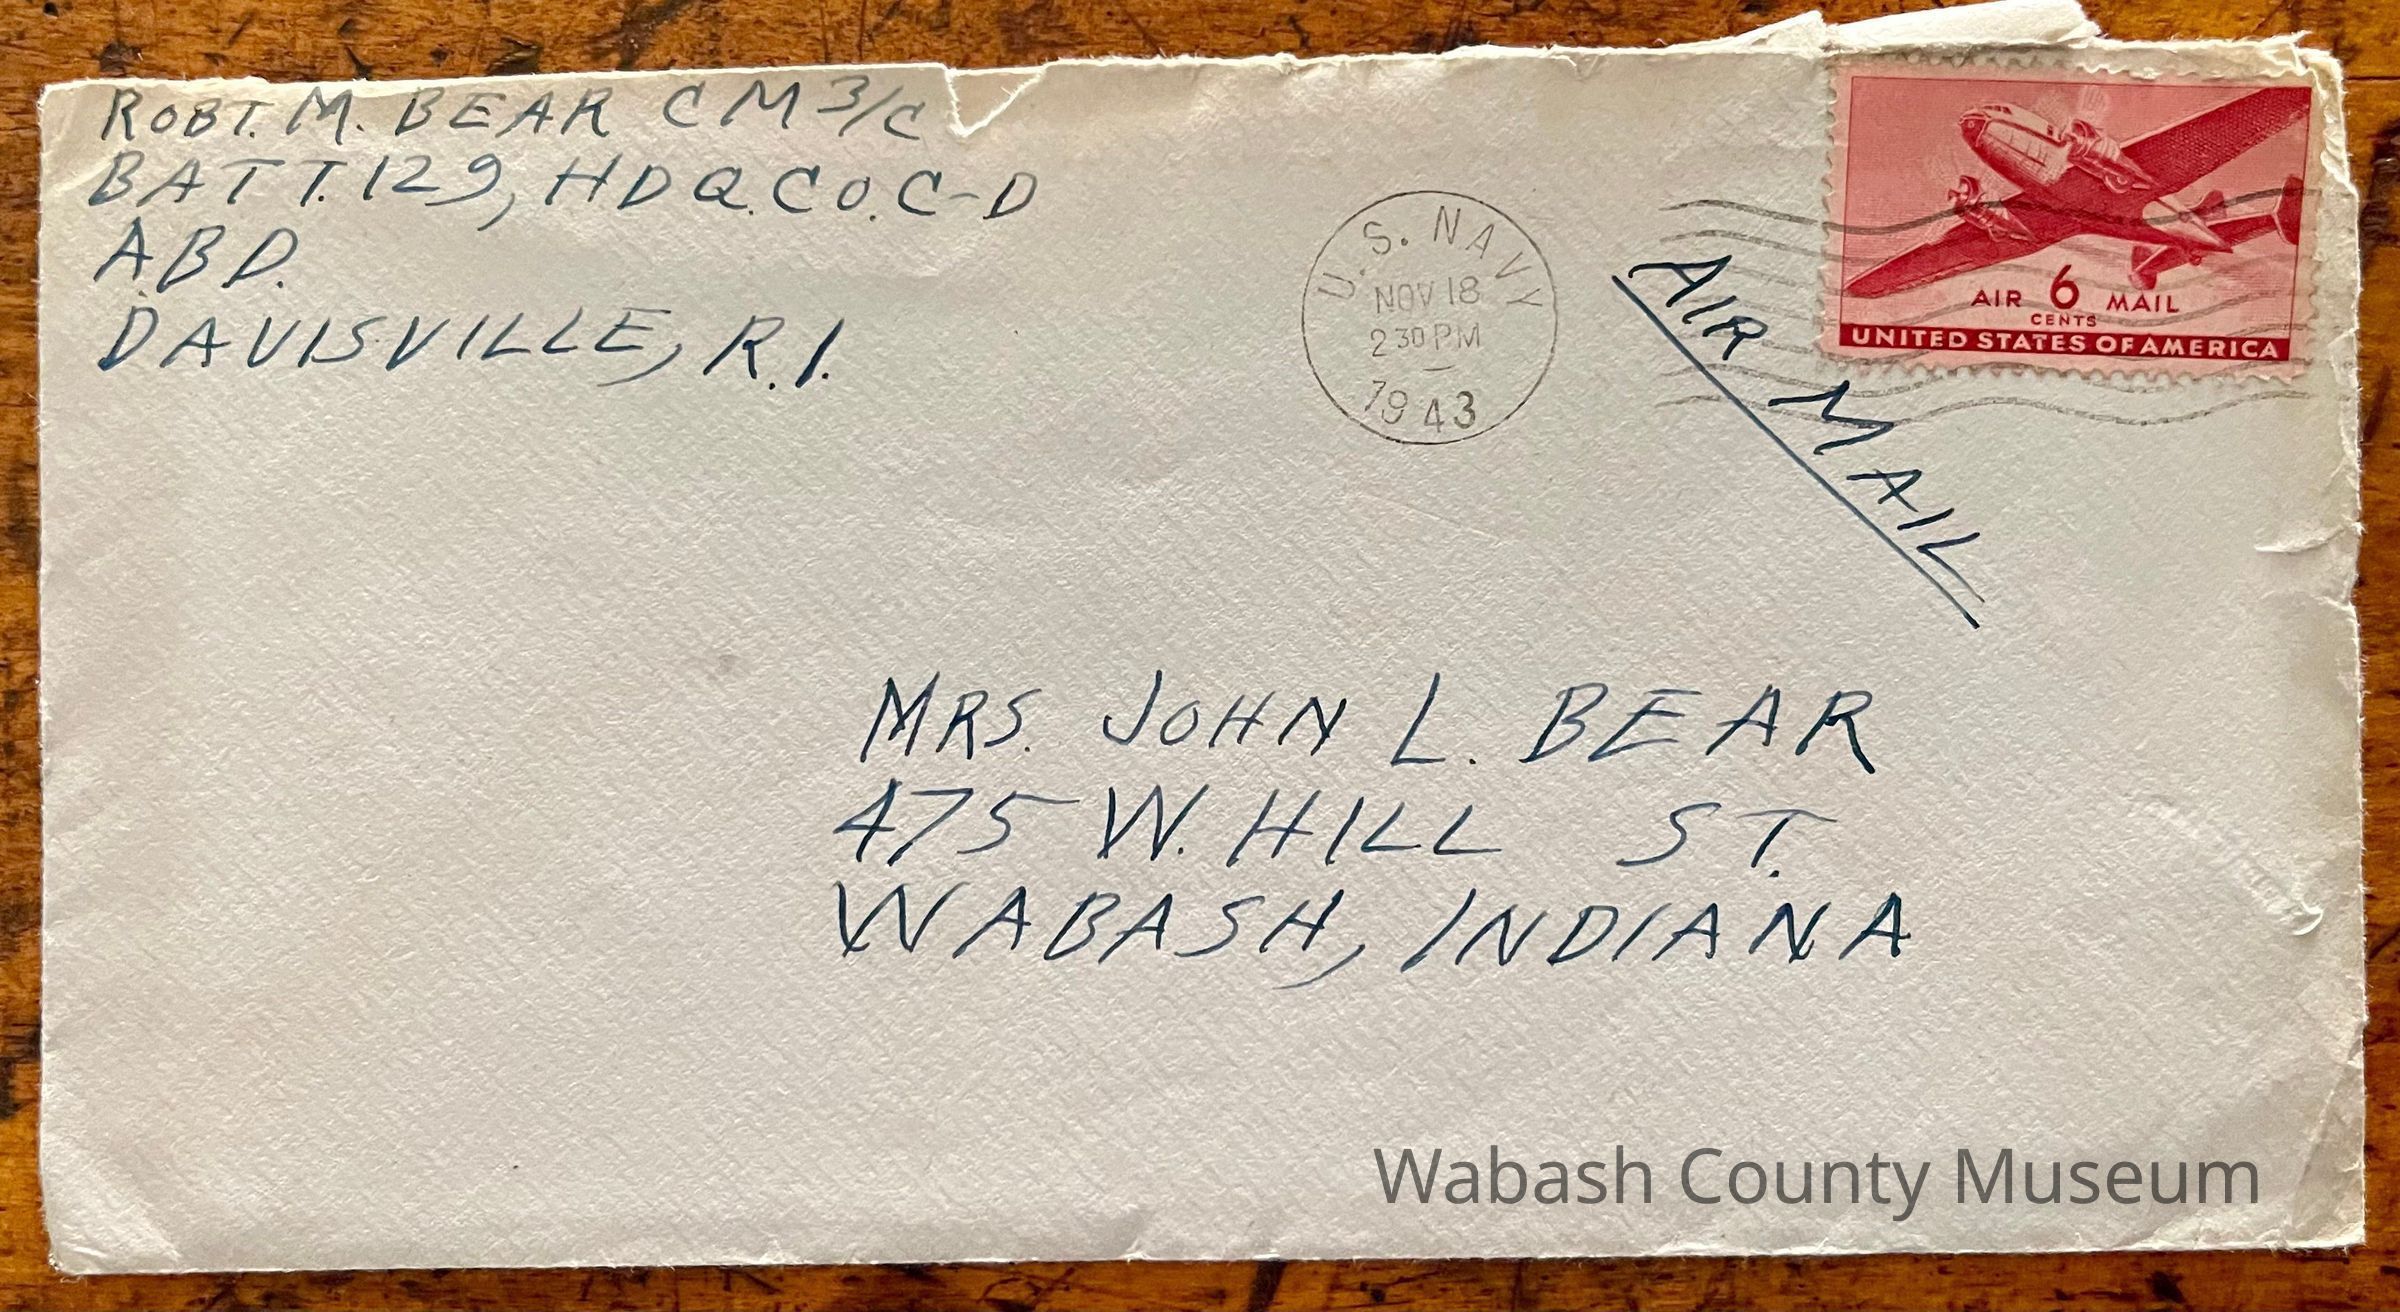 ROBT. M. BEAR CM 3/C
BATT. 129, HDQ. CO. C-D
A.B.D.
DAVISVILLE, R.I.
U.S. NAVY
NOV 18
2 30 PM
1943
AIR MAIL
AIR 6 MAIL
CENTS
UNITED STATES OF AMERICA
MRS. JOHN L. BEAR
475 W. HILL ST.
WABASH, INDIANA
Wabash County Museum